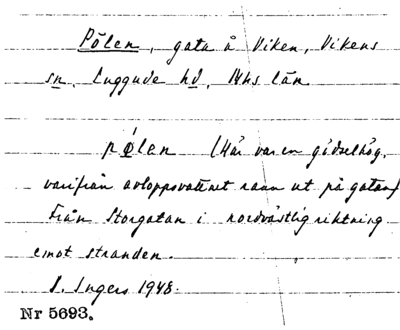 Pölen, gata å Viken, Vikens
sn. Luggude hd. Mhs län
pǿlen (Här var en gödselhög,
varifrån avloppsvattnet rann ut på gatan)
Från Storgatan i nordvästlig riktning
emot stranden.
I. Ingers 1948.
Nr 5693.